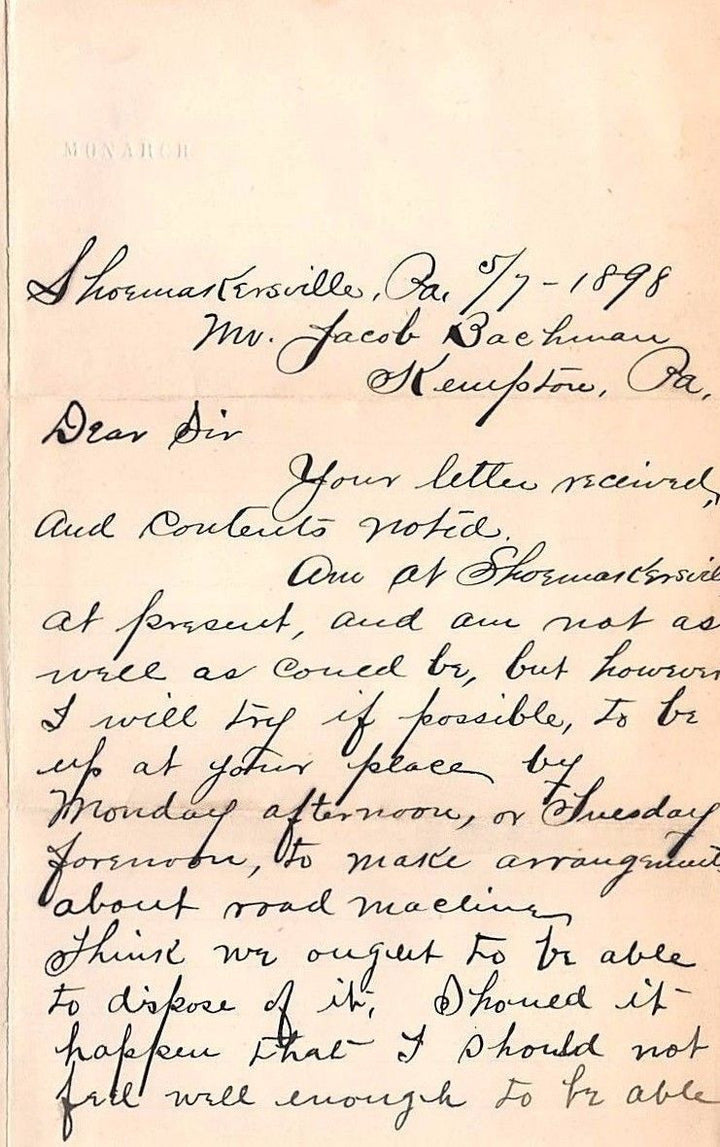 MONARCH
Shoemakersville, Pa, 5/7 - 1898
Mr. Jacob Bachman
Kempton, Pa,
Dear Sir
Your letter received,
and contents noted.
Am at Shoemakersvill
at present, and am not as
well as could be, but however
I will try if possible, to be
up at your place by
Monday afternoon, or Tuesday
forenoon, to make arrangements
about road machine
Think we ought to be able
to dispose of it, Should it
happen that I should not
feel well enough to be able